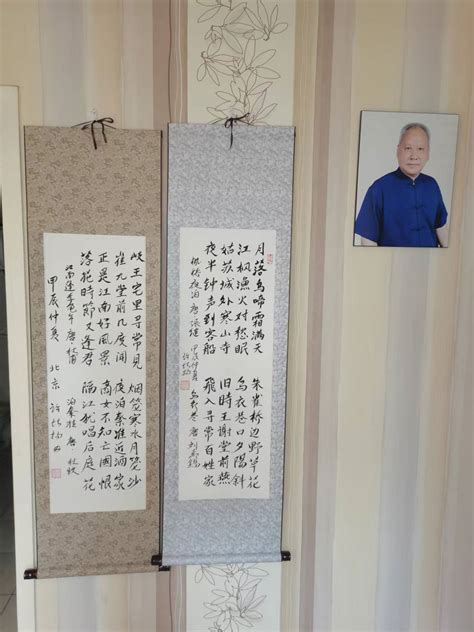 月落乌啼霜满天 朱雀桥边野草花
江枫渔火对愁眠 乌衣巷口夕阳斜
姑苏城外寒山寺 旧時王谢堂前燕
夜半钟声到客船 飞入寻常百姓家
枫桥夜泊 唐 张继 甲辰仲夏 乌衣巷 唐 刘禹锡
岐王宅里寻常見 烟笼寒水月笼沙
崔九堂前几度闻 夜泊秦淮近酒家
正是江南好風景 商女不知亡國恨
落花時節又逢君 隔江犹唱后庭花
江南逢李龟年 唐 杜甫 泊秦淮 唐 杜牧
甲辰仲夏 北京